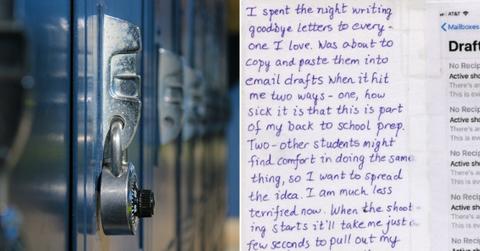 I spent the night writing
goodbye letters to every-
one I love. Was about to
copy and paste them into
email drafts when it hit
me two ways - one, how
sick it is that this is part
of my back to school prep.
Two - other students might
find comfort in doing the same
thing, so I want to spread
the idea. I am much less
terrified now. When the shoot-
ing starts it'll take me just a
few seconds to pull out my
AT&T
Mailboxes
Draf
No Recip
Active sho
There's a
This is ev
No Recip
Active sho
There's a
This is eve
No Recip
Active sho
There's a
This is eve
No Recip
Active sho
There's a
This is eve